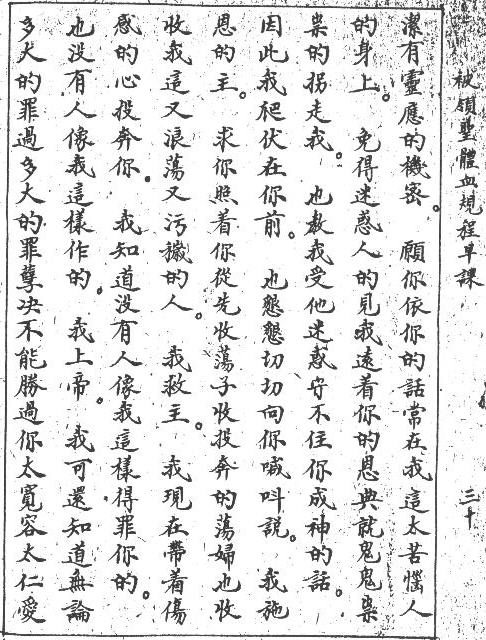 被領聖體血規程早課
三十
潔有靈應的機密。願你依你的話常在我這太苦惱人
的身上。免得迷惑人的見我遠着你的恩典就鬼鬼祟
祟的拐走我。也教我受他迷惑守不住你成神的話。
因此我爬伏在你前。也懇懇切切向你喊叫說。我施
恩的主。求你照着你從先收蕩子收投奔的蕩婦也收
收我這又浪蕩又污穢的人。我救主。我現在帶着傷
感的心投奔你。我知道没有人像我這樣得罪你的。
也没有人像我這樣作的。我上帝。我可還知道無論
多大的罪過多大的罪孽决不能勝過你太寬容太仁愛